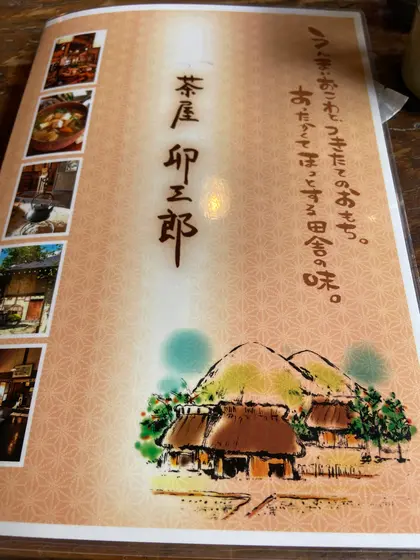 うんまいおこわと、つきたてのおもち。
あったかくてほっとする田舎の味。
茶屋 卯三郎